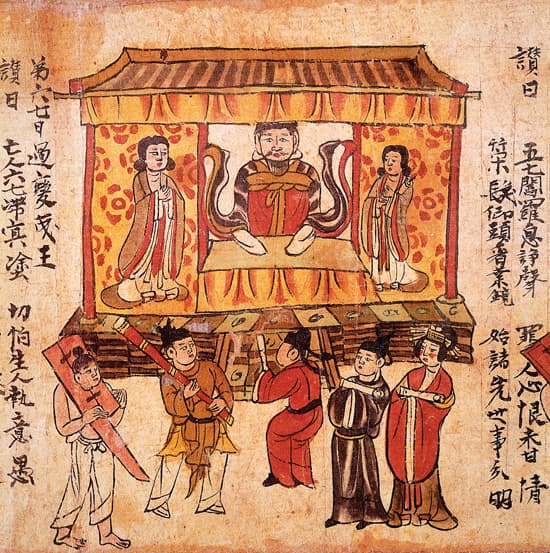 讚曰
五七閻羅息諍聲 罪人心恨未甘情
策髮仰頭看業鏡 始諸先世事分明
第六七日過變成王
讚曰
亡人六七滯冥塗 切怕生人執意愚